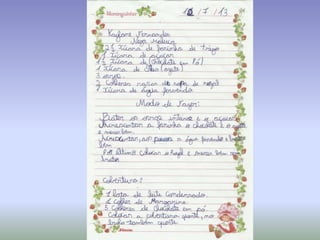 Moranguinho 10/7/13
Kaylane Fernandes
Nega Maluca
2 ½ Xícara de farinha de trigo
1 Xícara de açúcar
1 Xícara de (chocolate em pó)
1 Xícara de óleo (azeite)
3 ovos
2 Colheres de
1 Xícara de água fervendo
Modo de Fazer:
Bater os ovos inteiros e o açúcar
Acrescentar a farinha o chocolate e o
e mexer bem.
Acrescentar, aos poucos a água fervendo e
bem
Por último colocar o e mexer bem
Cobertura:
1 lata de leite Condensado.
1 Colher de Margarina
5 Colheres de chocolate em pó.
Colocar a cobertura quente, no
bolo também quente.